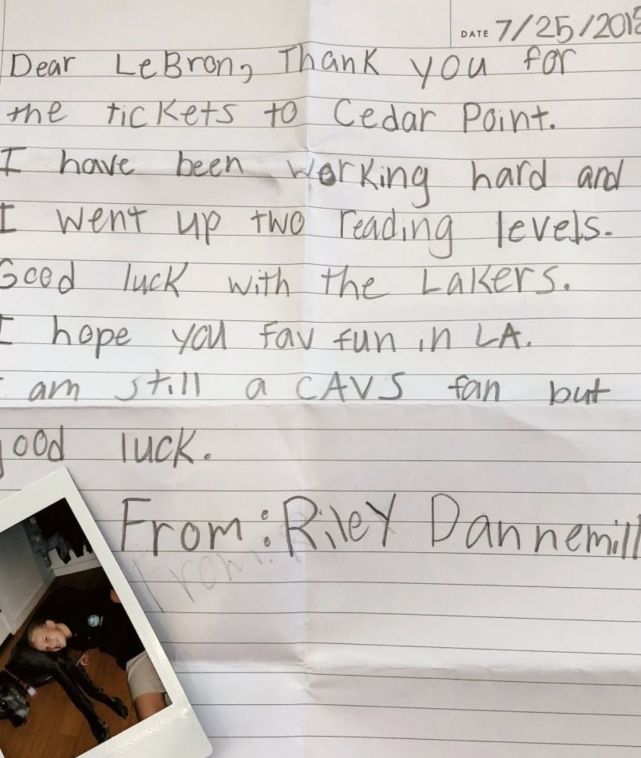 DATE 7/25/2018
Dear LeBron, Thank you for
the tickets to Cedar Point.
I have been working hard and
I went up two reading levels.
Good luck with the Lakers.
I hope you fav fun in LA.
I am still a CAVS fan but
good luck.
From: Riley Dannemill
From: